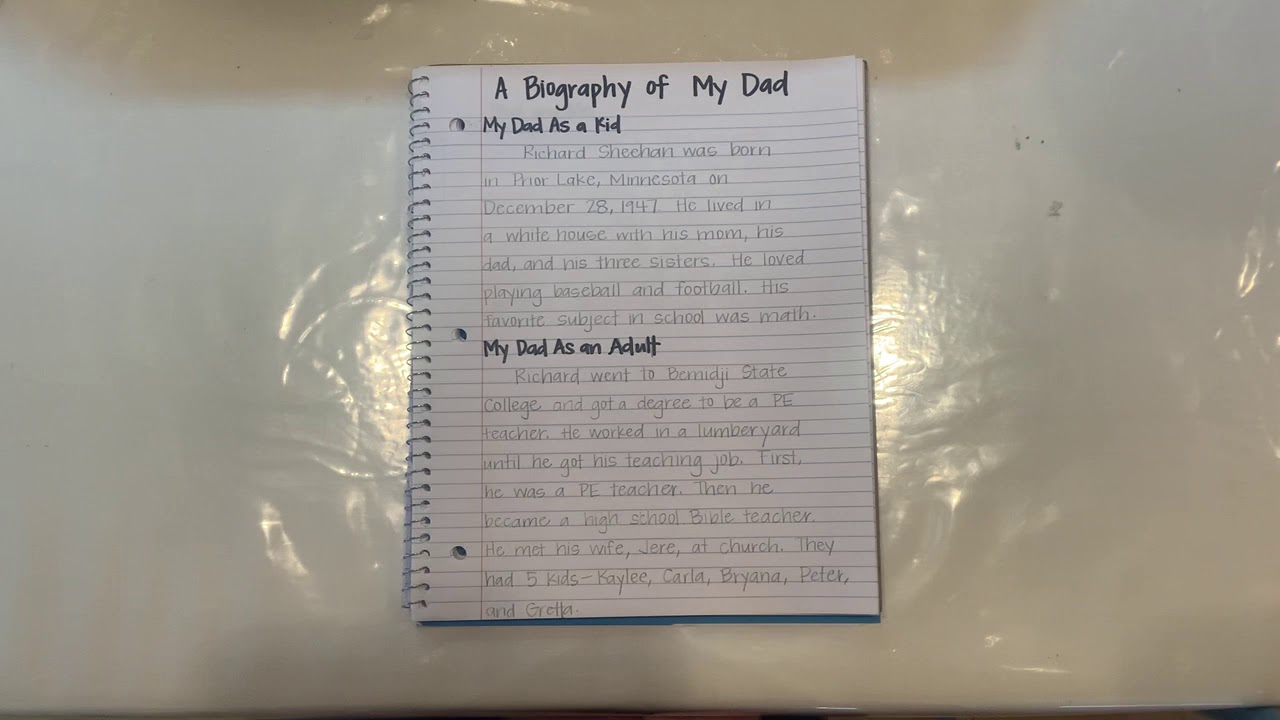 A Biography of My Dad
My Dad As a Kid
Richard Sheehan was born
in Prior Lake, Minnesota on
December 28, 1947. He lived in
a white house with his mom, his
dad, and his three sisters. He loved
playing baseball and football. His
favorite subject in school was math.
My Dad As an Adult
Richard went to Bemidji State
College and got a degree to be a PE
teacher. He worked in a lumberyard
until he got his teaching job. First,
he was a PE teacher. Then he
became a high school Bible teacher.
He met his wife, Jere, at church. They
had 5 kids-Kaylee, Carla, Bryana, Peter,
and Gretta.